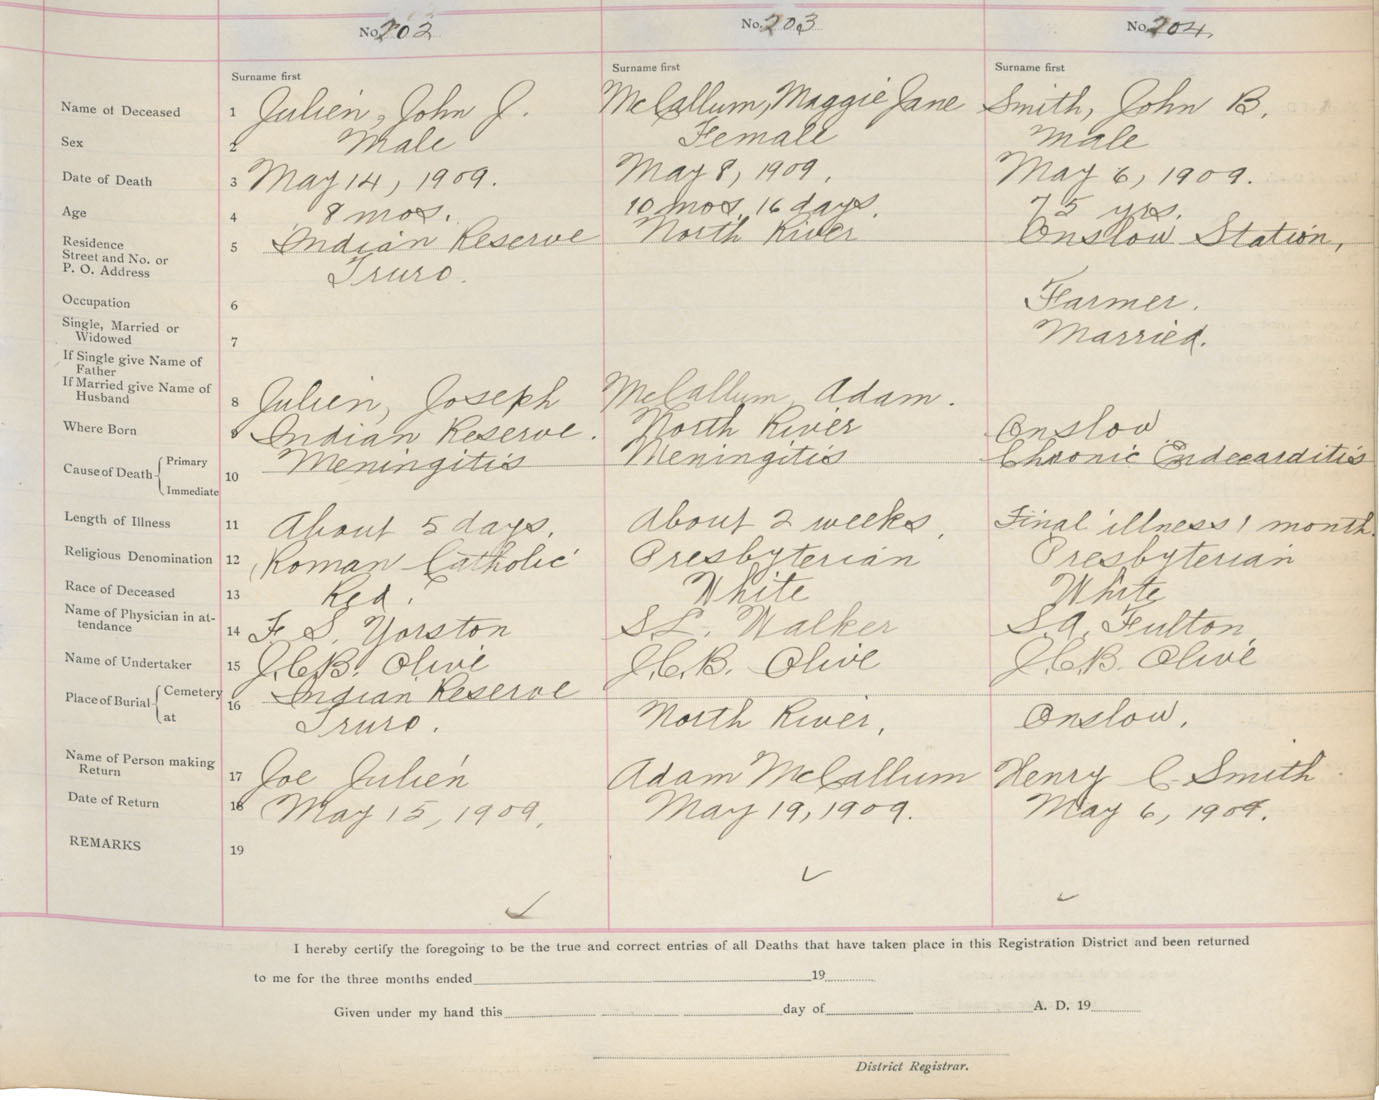 No. 202 No. 203 No. 204.
Surname first Surname first Surname first
Name of Deceased 1 Julien, John J. McCallum, Maggie Jane Smith, John B.
Sex 2 Male Female Male
Date of Death 3 May 14, 1909. May 8, 1909. May 6, 1909.
Age 4 8 mos. 10 mos. 16 days. 75 yrs.
Residence Street and No. or P. O. Address 5 Indian Reserve North River Onslow Station,
Truro.
Occupation 6 Farmer.
Single, Married or Widowed 7 Married.
If Single give Name of Father
If Married give Name of Husband 8 Julien, Joseph McCallum, Adam.
Where Born 9 Indian Reserve. North River Onslow
Cause of Death { Primary Immediate 10 Meningitis Meningitis Chronic Endocarditis
Length of Illness 11 About 5 days. About 2 weeks, Final illness 1 month.
Religious Denomination 12 Roman Catholic Presbyterian Presbyterian
Race of Deceased 13 Red. White White
Name of Physician in attendance 14 F. S. Yorston S.L. Walker S.A. Fulton
Name of Undertaker 15 J.C.B. Olive J.C.B. Olive J.C.B. Olive
Place of Burial { Cemetery at 16 Indian Reserve
Truro. North River, Onslow.
Name of Person making Return 17 Joe Julien Adam McCallum Henry C. Smith
Date of Return 18 May 15, 1909, May 19, 1909. May 6, 1909.
REMARKS 19
I hereby certify the foregoing to be the true and correct entries of all Deaths that have taken place in this Registration District and been returned
to me for the three months ended 19
Given under my hand this day of A. D. 19
District Registrar.